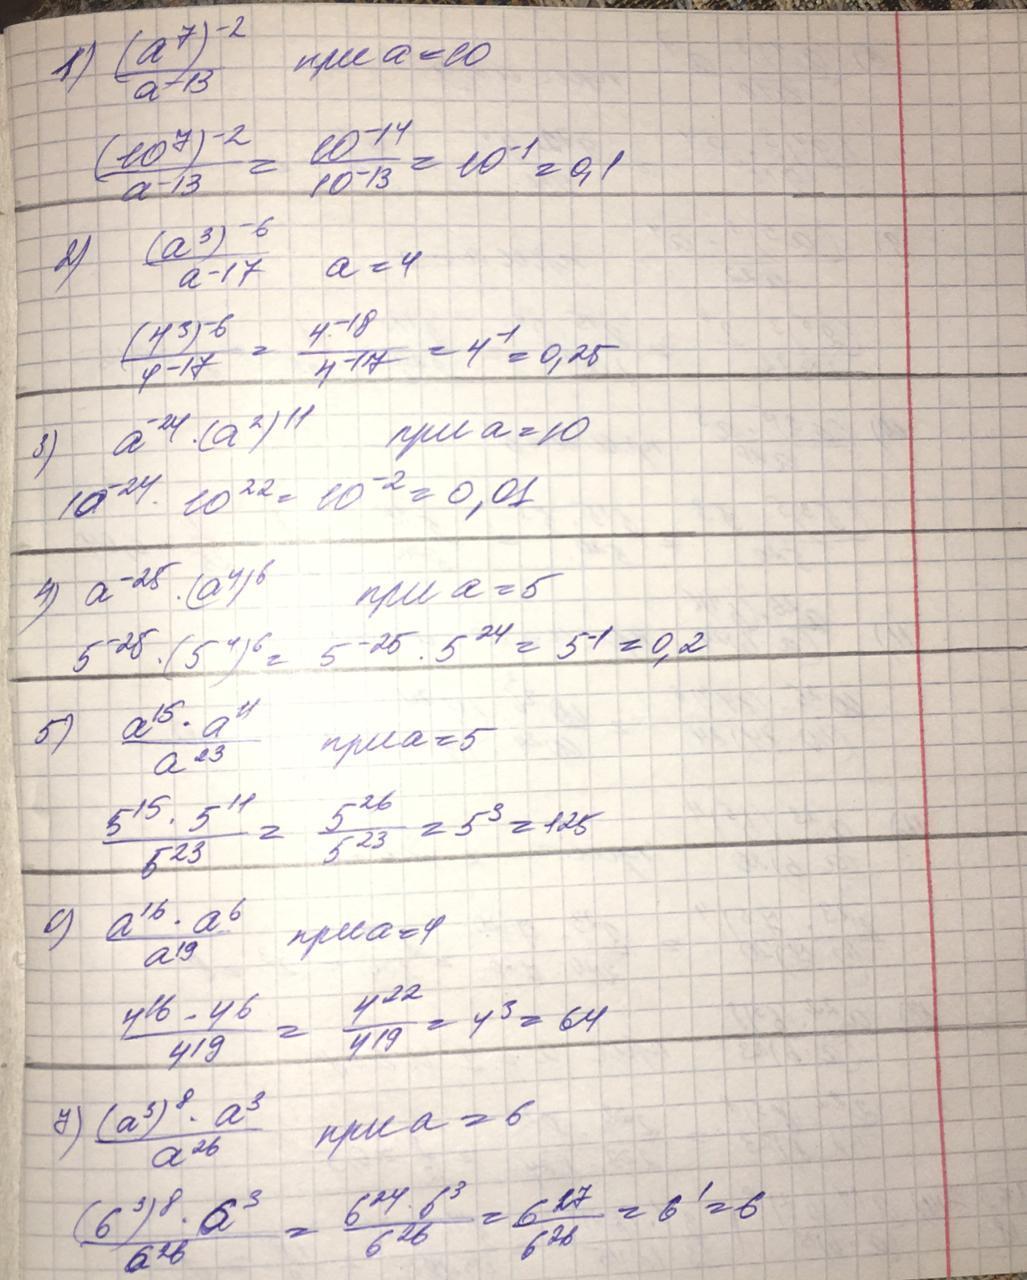 1) (a⁷)⁻² / a⁻¹³ при a=10
(10⁷)⁻² / a⁻¹³ = 10⁻¹⁴ / 10⁻¹³ = 10⁻¹ = 0,1
2) (a³)⁻⁶ / a⁻¹⁷ a=4
(4³)⁻⁶ / 4⁻¹⁷ = 4⁻¹⁸ / 4⁻¹⁷ = 4⁻¹ = 0,25
3) a⁻²⁴ · (a²)¹¹ при a=10
10⁻²⁴ · 10²² = 10⁻² = 0,01
4) a⁻²⁵ · (a⁴)⁶ при a=5
5⁻²⁵ · (5⁴)⁶ = 5⁻²⁵ · 5²⁴ = 5⁻¹ = 0,2
5) a¹⁵ · a¹¹ / a²³ при a=5
5¹⁵ · 5¹¹ / 5²³ = 5²⁶ / 5²³ = 5³ = 125
6) a¹⁶ · a⁶ / a¹⁹ при a=4
4¹⁶ · 4⁶ / 4¹⁹ = 4²² / 4¹⁹ = 4³ = 64
7) (a³)⁸ · a³ / a²⁶ при a=6
(6³)⁸ · 6³ / 6²⁶ = 6²⁴ · 6³ / 6²⁶ = 6²⁷ / 6²⁶ = 6¹ = 6